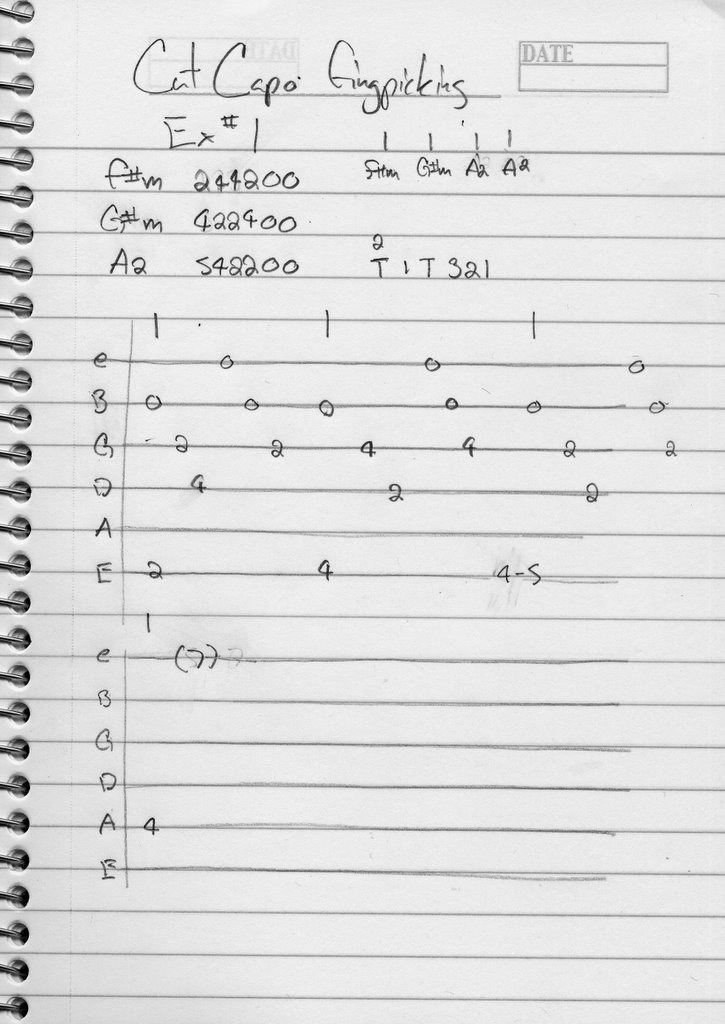 DATE
Cut Capo Fingpicking
Ex #1
| | | |
F#m G#m A2 A2
F#m 244200
G#m 422400
A2 542200
2
T 1 T 321
| | |
e 0 0 0
B 0 0 0 0 0 0
G 2 2 4 4 2 2
D 4 2 2
A
E 2 4 4-5
|
e (7)
B
G
D
A 4
E